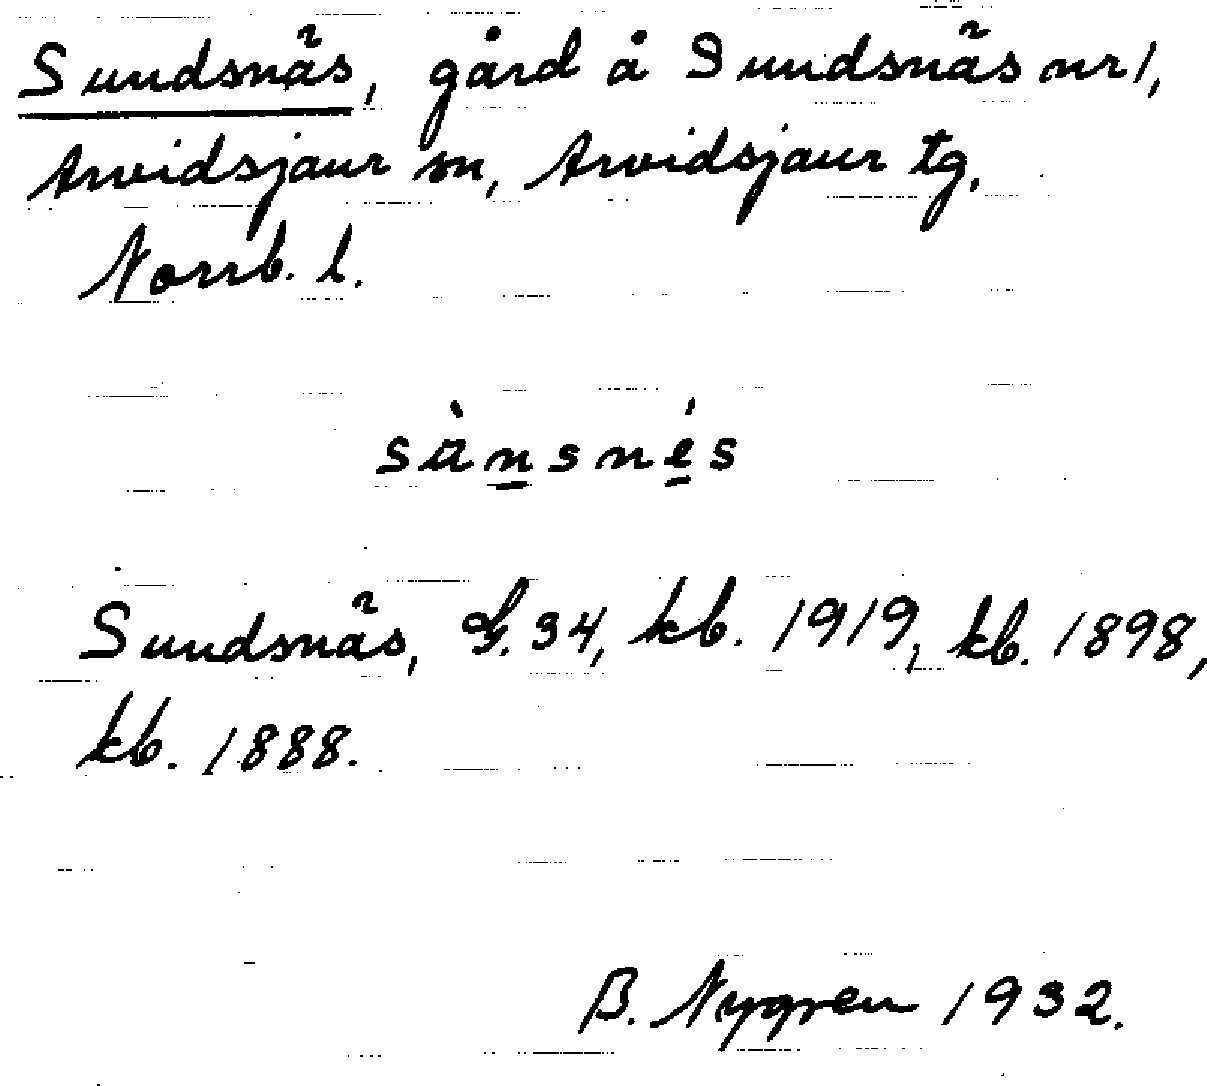 Sundsnäs, gård å Sundsnäs nr 1,
Arvidsjaur sn, Arvidsjaur tg,
Norrb. l.
sànsnés
Sundsnäs, G. 34, kb. 1919, kb. 1898,
kb. 1888.
B. Nygren 1932.